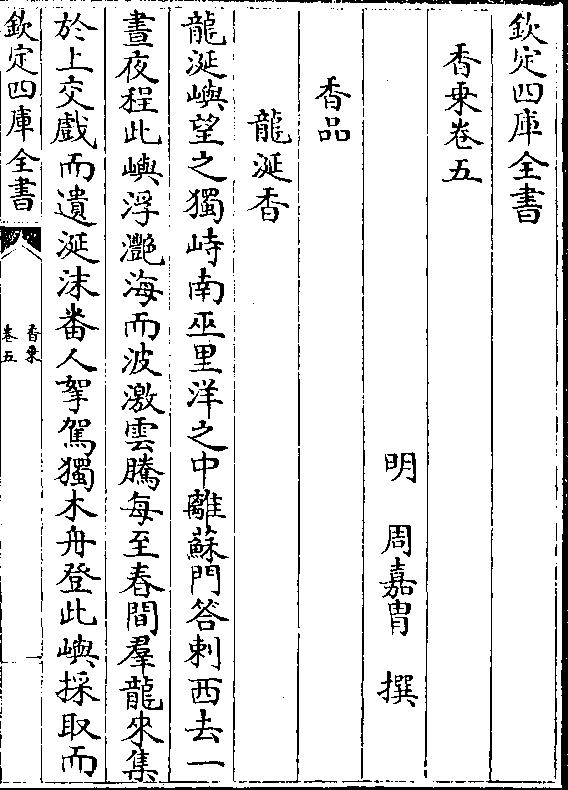 欽定四庫全書
香乗卷五
明 周嘉胄 撰
香品
龍涎香
龍涎嶼望之獨峙南巫里洋之中離蘇門答剌西去一
晝夜程此嶼浮灧海而波激雲騰每至春間羣龍來集
於上交戲而遺涎沫番人拏駕獨木舟登此嶼採取而
欽定四庫全書
香乗
卷五
一